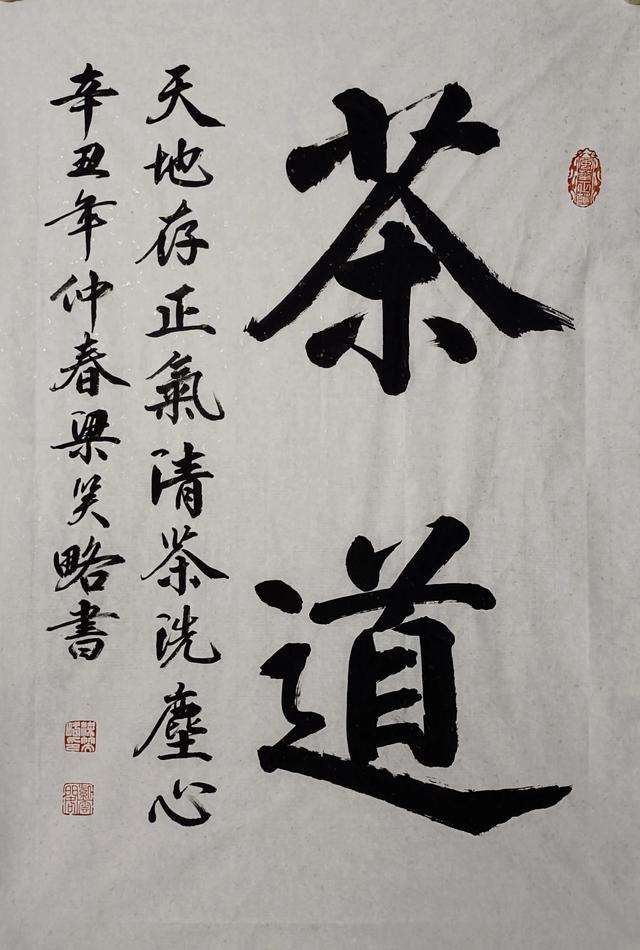 茶道
天地存正氣清茶洗塵心
辛丑年仲春梁笑略書